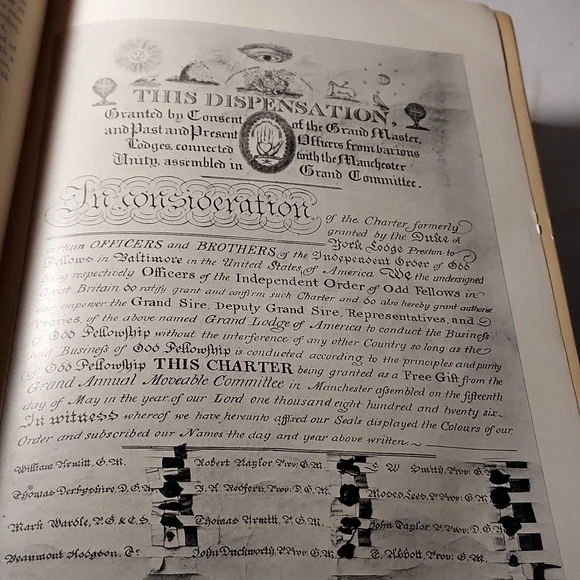 THIS DISPENSATION,
Granted by Consent of the Grand Master,
and Past and Present Officers from various
Lodges, connected with the Manchester
Unity, assembled in Grand Committee.
In consideration of the Charter formerly
granted by the Duke of
York Lodge Preston to
certain OFFICERS and BROTHERS of the Independent Order of Odd
Fellows in Baltimore in the United States of America We the undersigned
being respectively Officers of the Independent Order of Odd Fellows in
Great Britain do ratify grant and confirm such Charter and do also hereby grant authorise
and empower the Grand Sire, Deputy Grand Sire, Representatives, and
Proxies, of the above named Grand Lodge of America to conduct the Business
of Odd Fellowship without the interference of any other Country so long as the
said Business of Odd Fellowship is conducted according to the principles and purity
of Odd Fellowship THIS CHARTER being granted as a Free Gift from the
Grand Annual Moveable Committee in Manchester assembled on the fifteenth
day of May in the year of our Lord one thousand eight hundred and twenty six
In witness whereof we have hereunto affixed our Seals displayed the Colours of our
Order and subscribed our Names the day and year above written.
William Armitt, G.M. Robert Naylor, Prov: G.M. W Smith, Prov: G.
Thomas Derbyshire, D.G. J.A. Redfern, Prov: G.M. Moses Lees, P. Prov: G.M.
Mark Wardle, P.G. & C.S. Thomas Armitt, P.G.M. John Taylor, P. Prov: D.G.
Beaumont Hodgson, John Duckworth, P. Prov: G.M. T. Abbott, Prov: G.M.